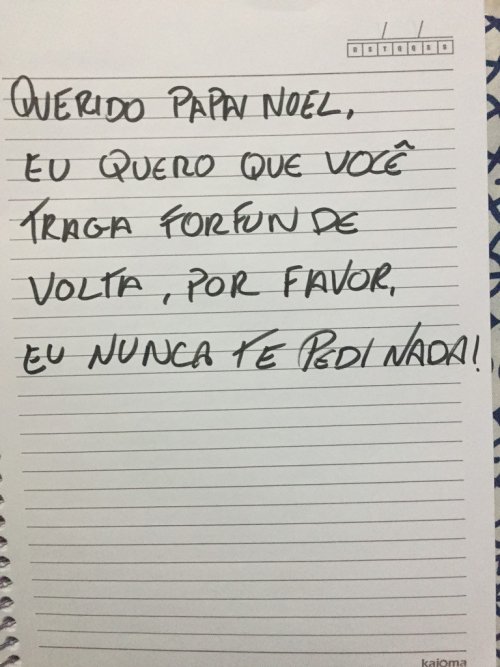 / /
D S T Q Q S S
QUERIDO PAPAI NOEL,
EU QUERO QUE VOCÊ
TRAGA FORFUN DE
VOLTA, POR FAVOR,
EU NUNCA TE PEDI NADA!
kajoma